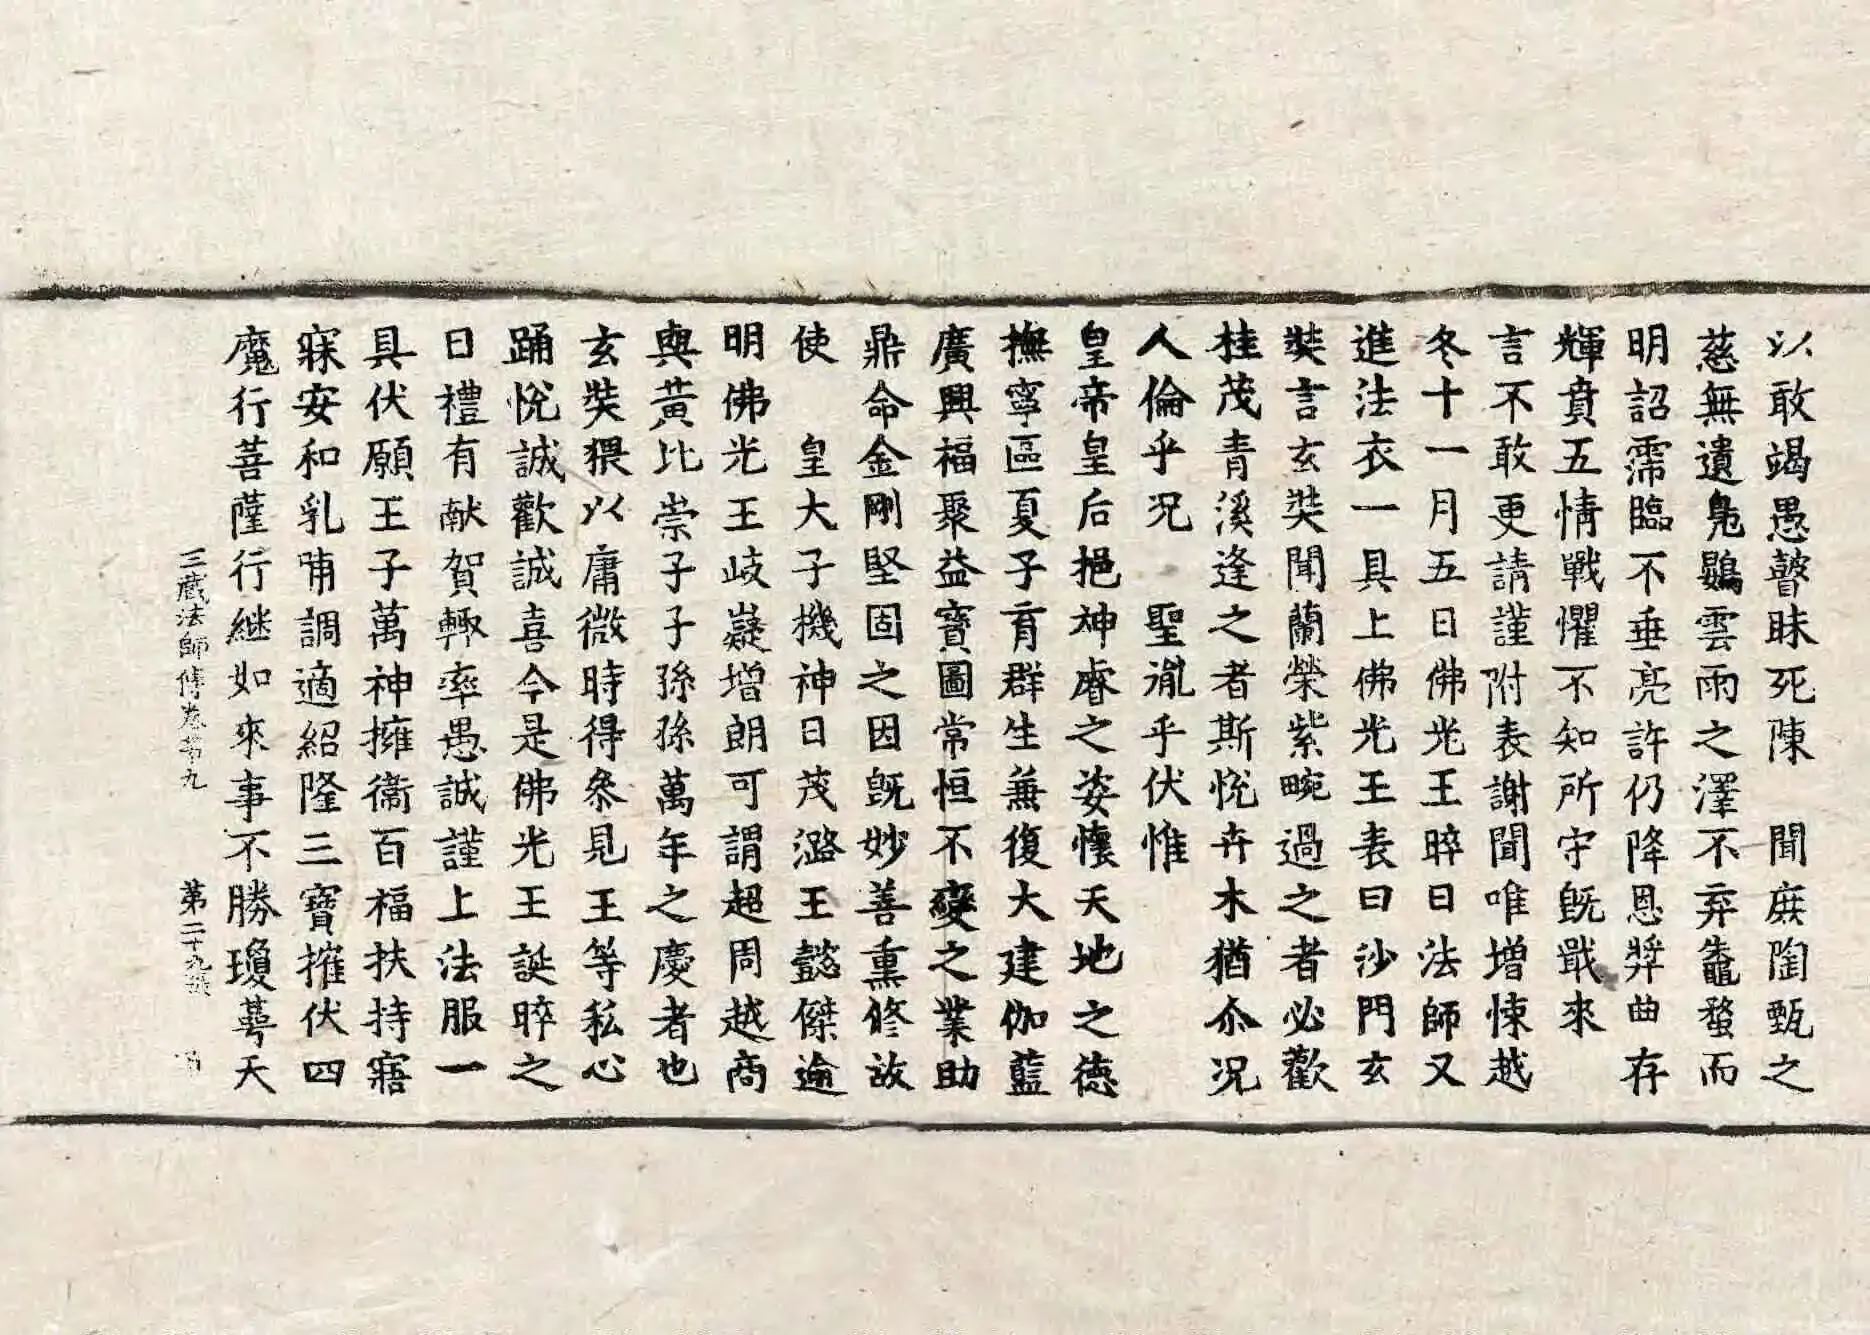 以敢竭愚瞽昧死陳　聞庶陶甄之
慈無遺鳬鷃雲雨之澤不弃蠢蝥而
明詔霈臨不垂亮許仍降恩獎曲存
輝賁五情戰懼不知所守旣戢來
言不敢更請謹附表謝聞唯增悚越
冬十一月五日佛光王晬日法師又
進法衣一具上佛光王表曰沙門玄
奘言玄奘聞蘭榮紫畹過之者必歡
桂茂青溪逢之者斯悅卉木猶尒況
人倫乎況　聖胤乎伏惟
皇帝皇后挹神睿之姿懷天地之德
撫寧區夏子育群生兼復大建伽藍
廣興福聚益寶圖常恒不變之業助
鼎命金剛堅固之因旣妙善熏修故
使　皇大子機神日茂潞王懿傑逾
明佛光王岐嶷增朗可謂超周越商
與黃比崇子子孫孫萬年之慶者也
玄奘猥以庸微時得叅見王等私心
踊悅誠歡誠喜今是佛光王誕晬之
日禮有献賀輙率愚誠謹上法服一
具伏願王子萬神擁衛百福扶持寤
寐安和乳哺調適紹隆三寶摧伏四
魔行菩薩行継如來事不勝瓊萼天
三藏法師傳卷第九　第二十九張